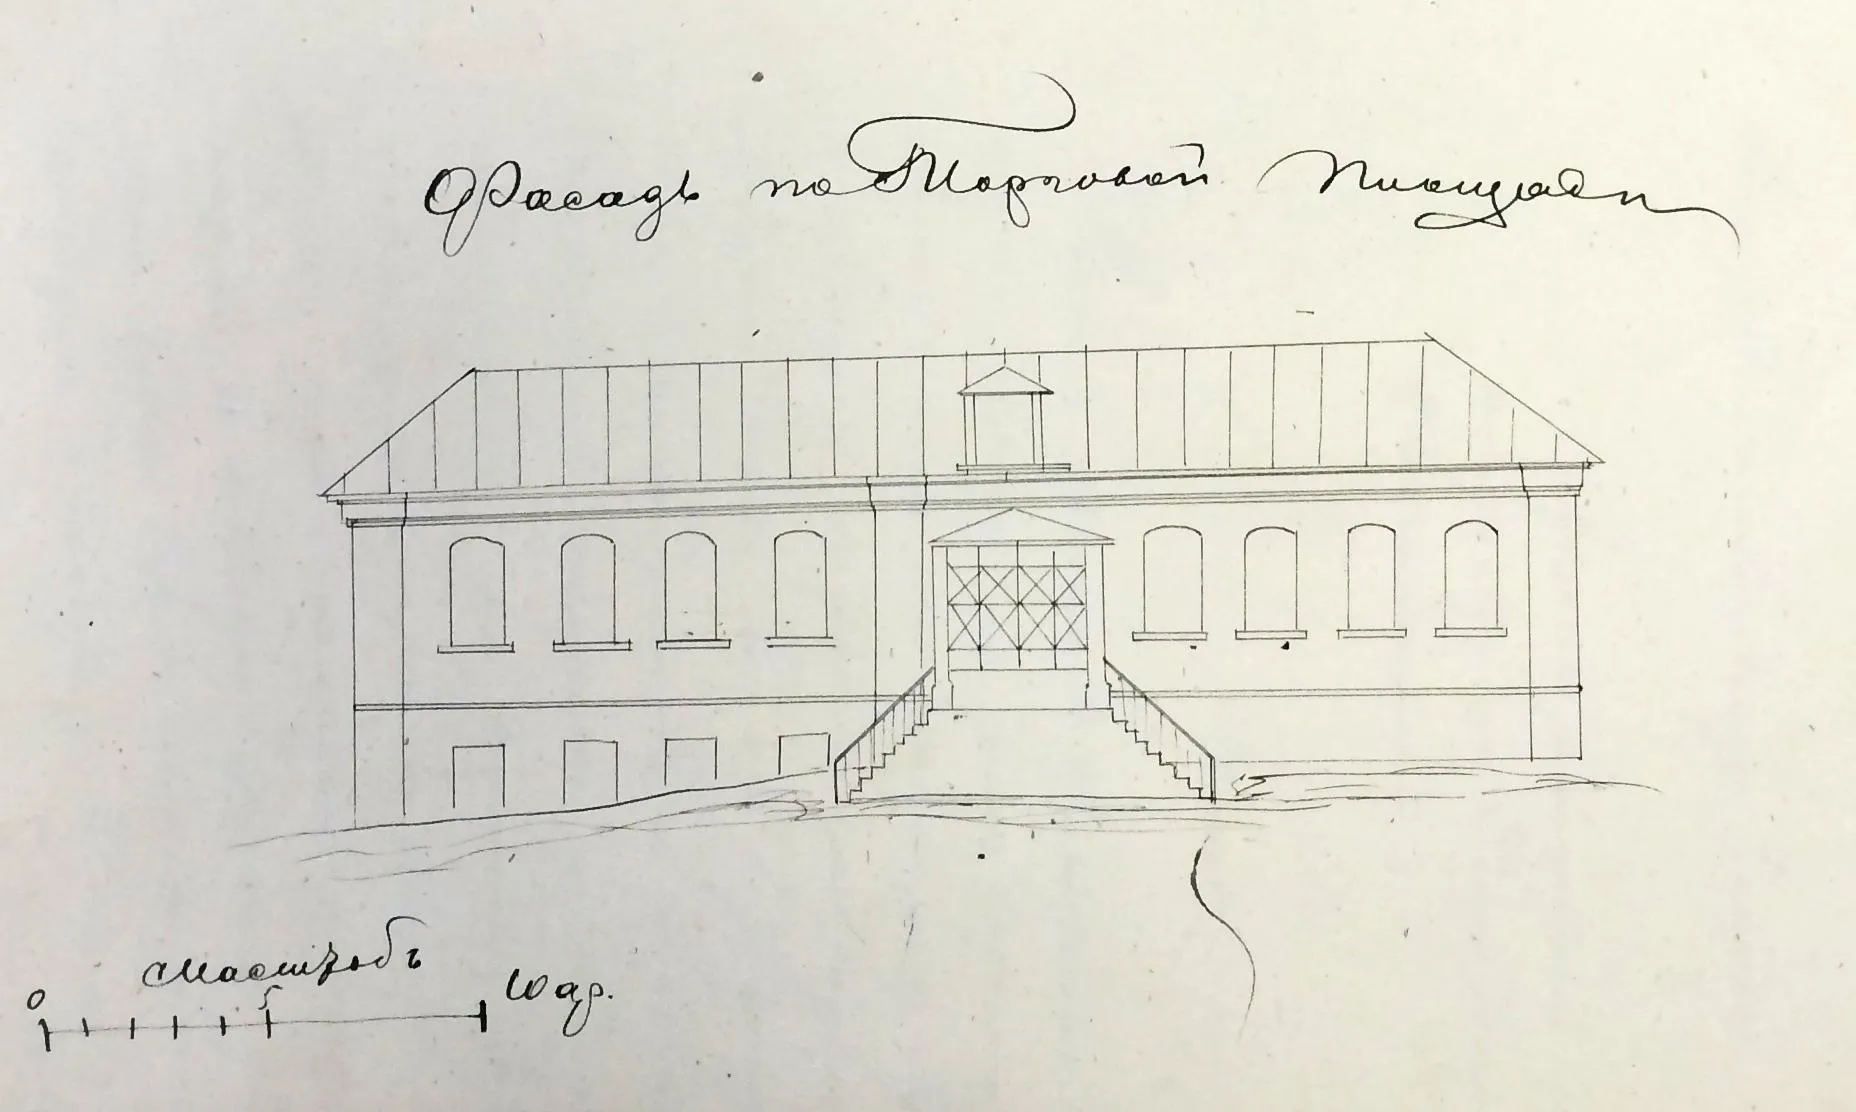 Фасадъ по Торговой Площади
Масштабъ
0 5 10 ар.